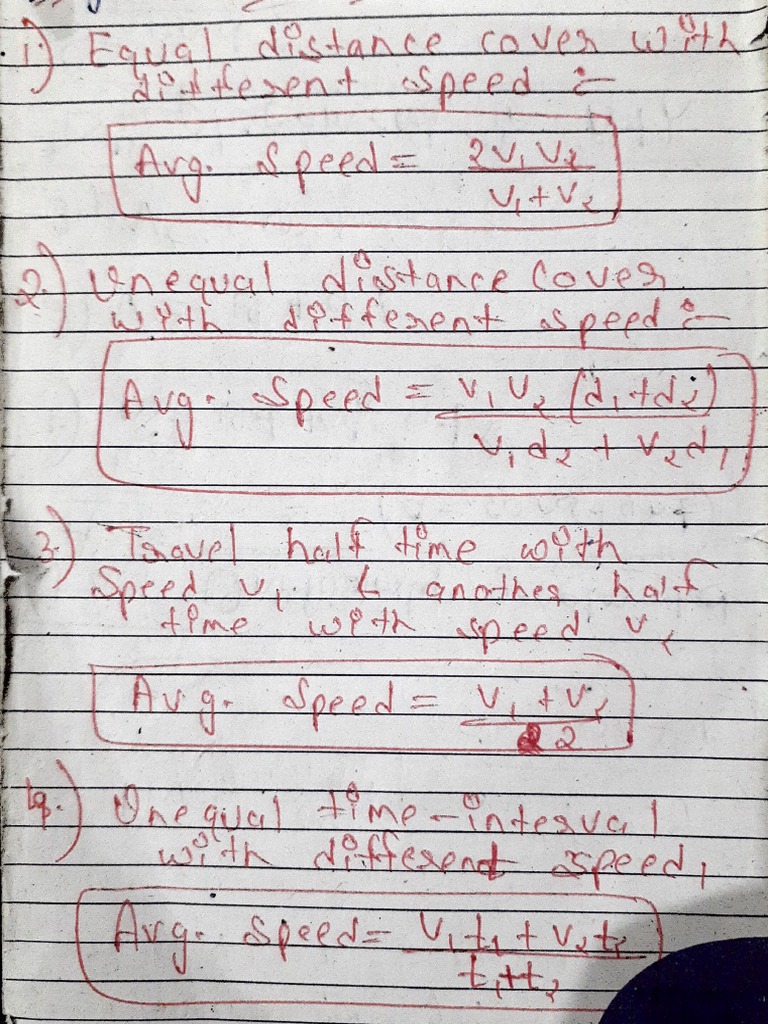 1.) Equal distance cover with
different speed :-
Avg. Speed = 2v₁v₂ / v₁+v₂
2.) Unequal distance cover
with different speed :-
Avg. Speed = v₁v₂ (d₁+d₂) / v₁d₂ + v₂d₁
3.) Travel half time with
speed v₁ & another half
time with speed v₂
Avg. Speed = v₁ + v₂ / 2
4.) Unequal time-interval
with different speed,
Avg. Speed = v₁t₁ + v₂t₂ / t₁+t₂